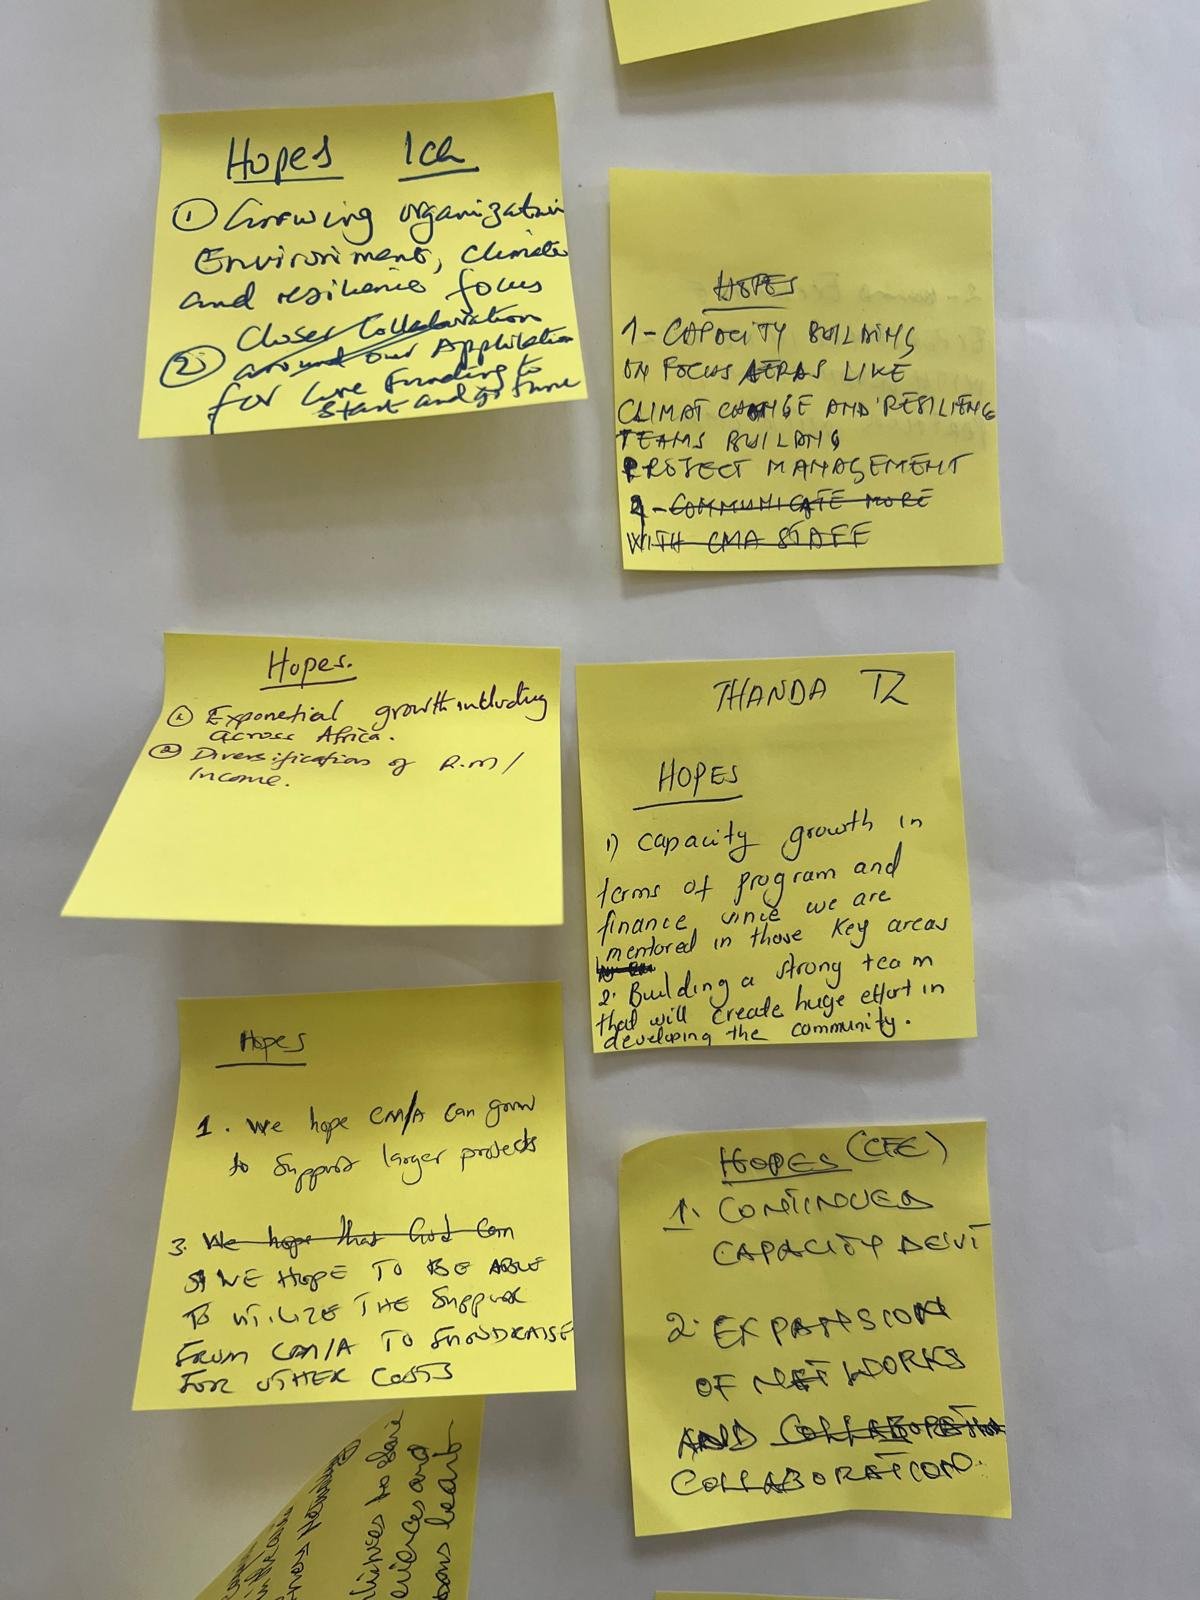 Hopes Ica
① Growing organization
Environment, climate
and resilience focus
Closer Collaboration
② around our Application
for Core Funding to
Start and go fune
HOPES
1-CAPACITY BUILDING
ON FOCUS AERAS LIKE
CLIMAT CHANGE AND RESILIENCE
TEAMS BUILDANG
PROJECT MANAGEMENT
2-COMMUNICATE MORE
WITH CMA STAFF
Hopes.
① Exponetial growth including
across Africa.
② Diversification of R.M/
Income.
THANDA TZ
HOPES
1) Capacity growth in
terms of program and
finance since we are
mentored in those key areas
2. Building a strong team
that will create huge effort in
developing the community.
Hopes
1. We hope CM/A can grow
to support larger projects
3. We hope that God can
WE HOPE TO BE ABLE
TO UTILIZE THE Support
FROM CM/A TO FUNDRAISE
FOR OTHER COSTS
HOPES (CFC)
1. CONTINUED
CAPACITY DEVT
2. EXPANSION
OF NETWORKS
AND COLLABORATION
COLLABORATION.
to
and
learnt